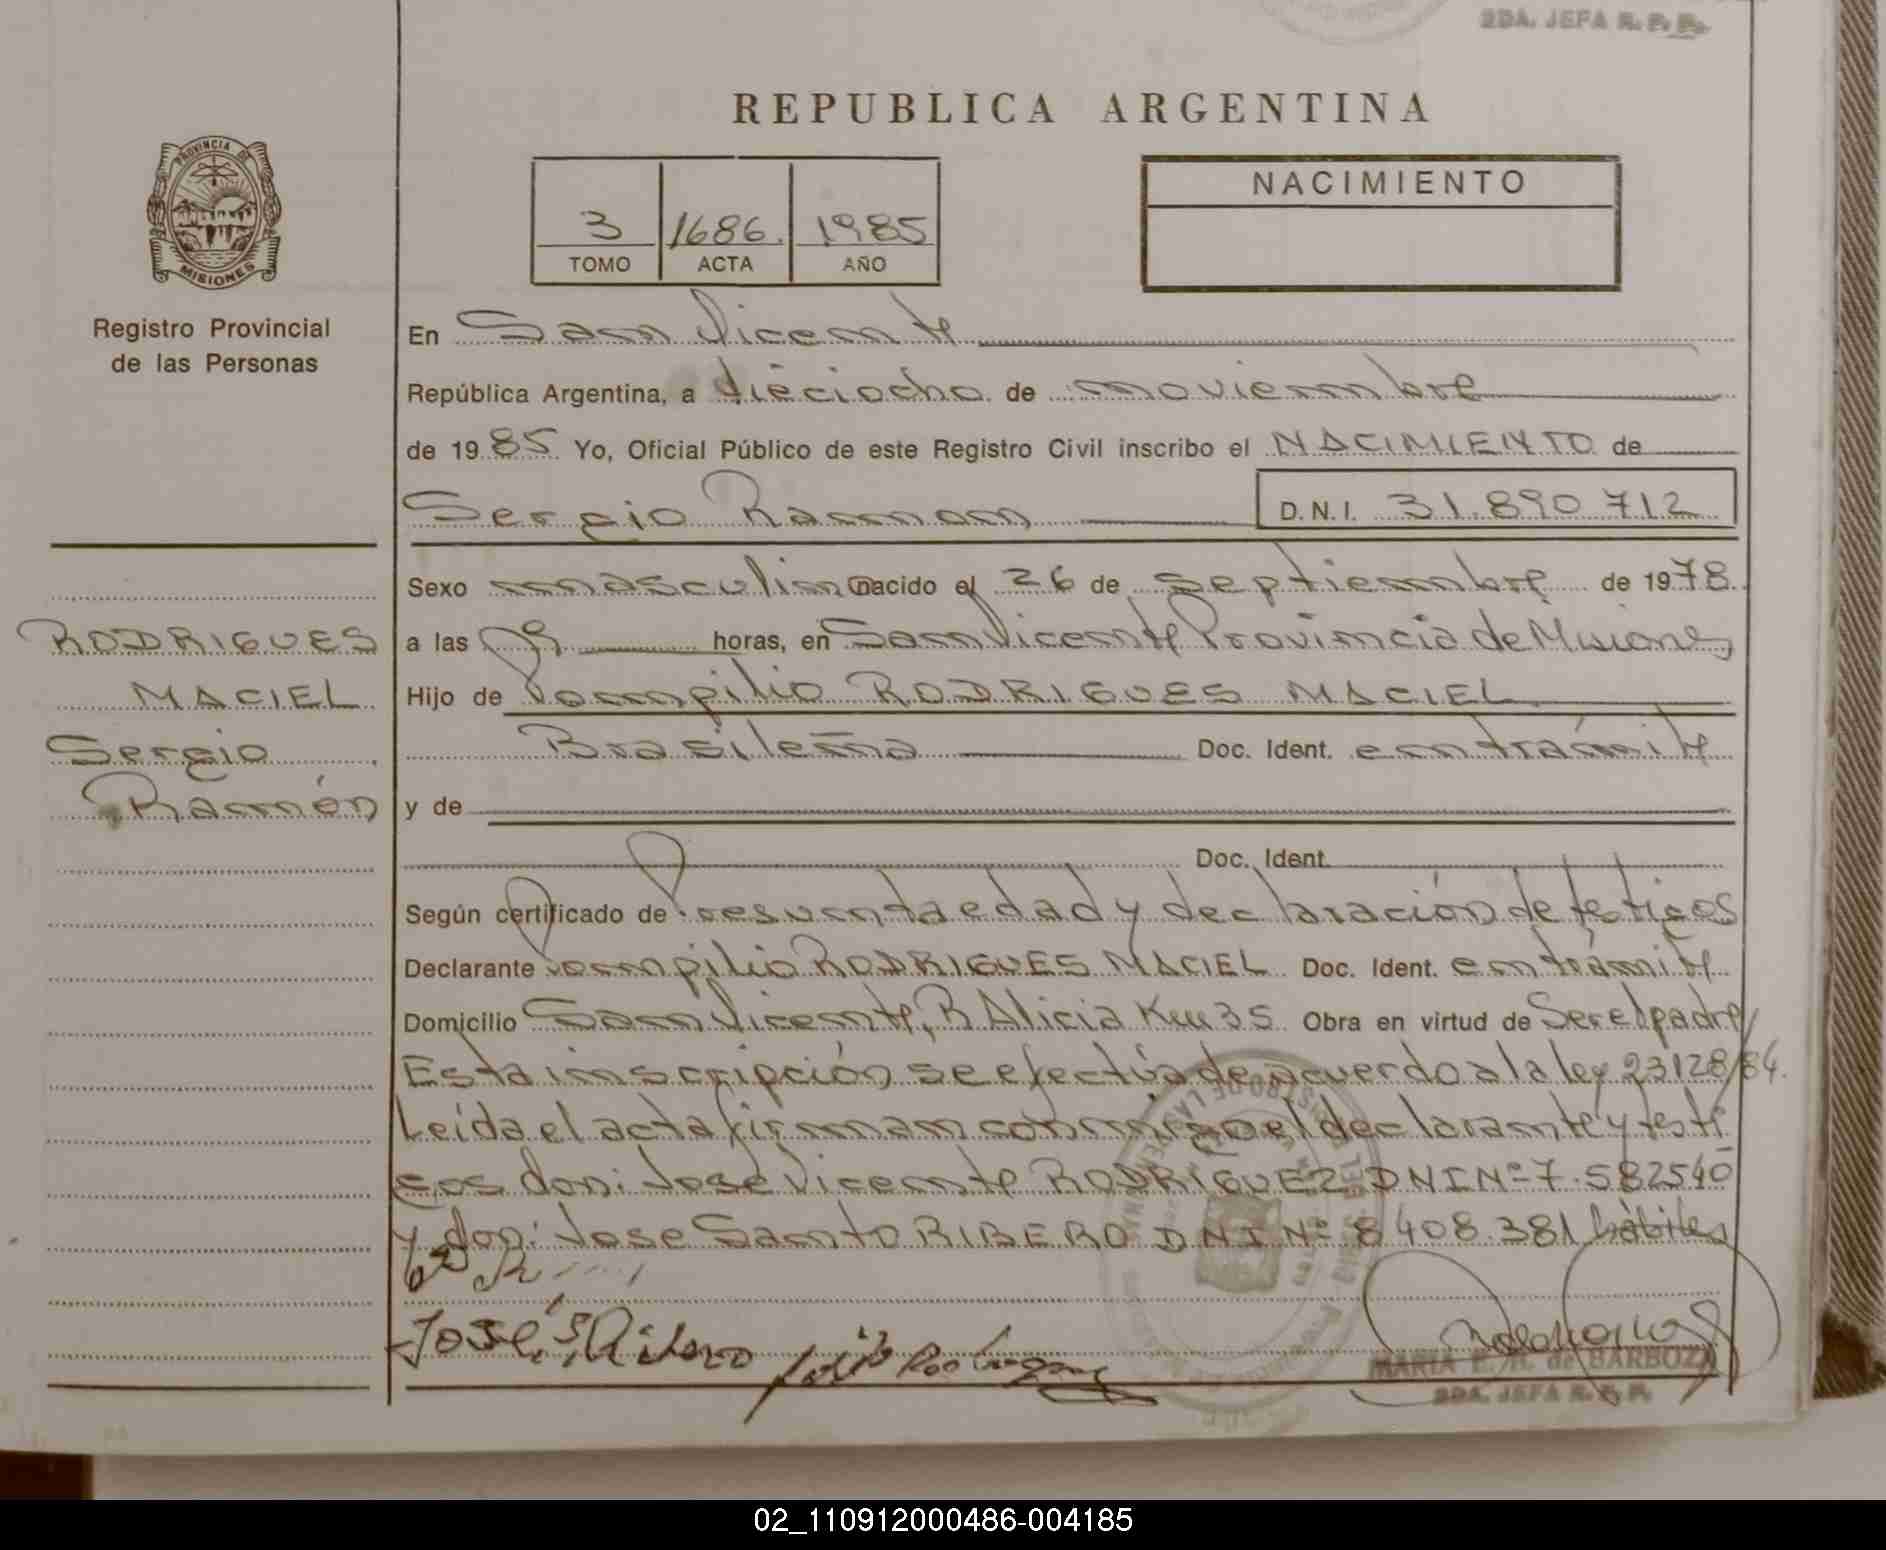 2DA. JEFA R. P. P.
REPUBLICA ARGENTINA
PROVINCIA DE
MISIONES
Registro Provincial
de las Personas
3 1686. 1985
TOMO ACTA AÑO
NACIMIENTO
En San Vicente
República Argentina, a dieciocho de noviembre
de 1985 Yo, Oficial Público de este Registro Civil inscribo el NACIMIENTO de
Sergio Ramon D.N.I. 31.890 712
Sexo masculino nacido el 26 de septiembre de 1978
a las 09 horas, en San Vicente Provincia de Misiones
Hijo de Pompilio RODRIGUES MACIEL
Brasileña Doc. Ident. en trámite
y de
Doc. Ident.
Según certificado de Presunta edad y declaración de testigos
Declarante Pompilio RODRIGUES MACIEL Doc. Ident. en trámite
Domicilio San Vicente, P. Alicia Km 35 Obra en virtud de Ser el padre
Esta inscripción se efectúa de acuerdo a la ley 23128/84.
Leída el acta firman conmigo el declarante y testi
gos don: José Vicente RODRIGUEZ DNI Nº 7.582540
y don: Jose Santo RIBERO DNI Nº 8 408.381 hábiles
RODRIGUES
MACIEL
Sergio
Ramón
José, S, Ribero
MARIA E. R. de BARBOZA
2DA. JEFA R. P. P.
02_110912000486-004185